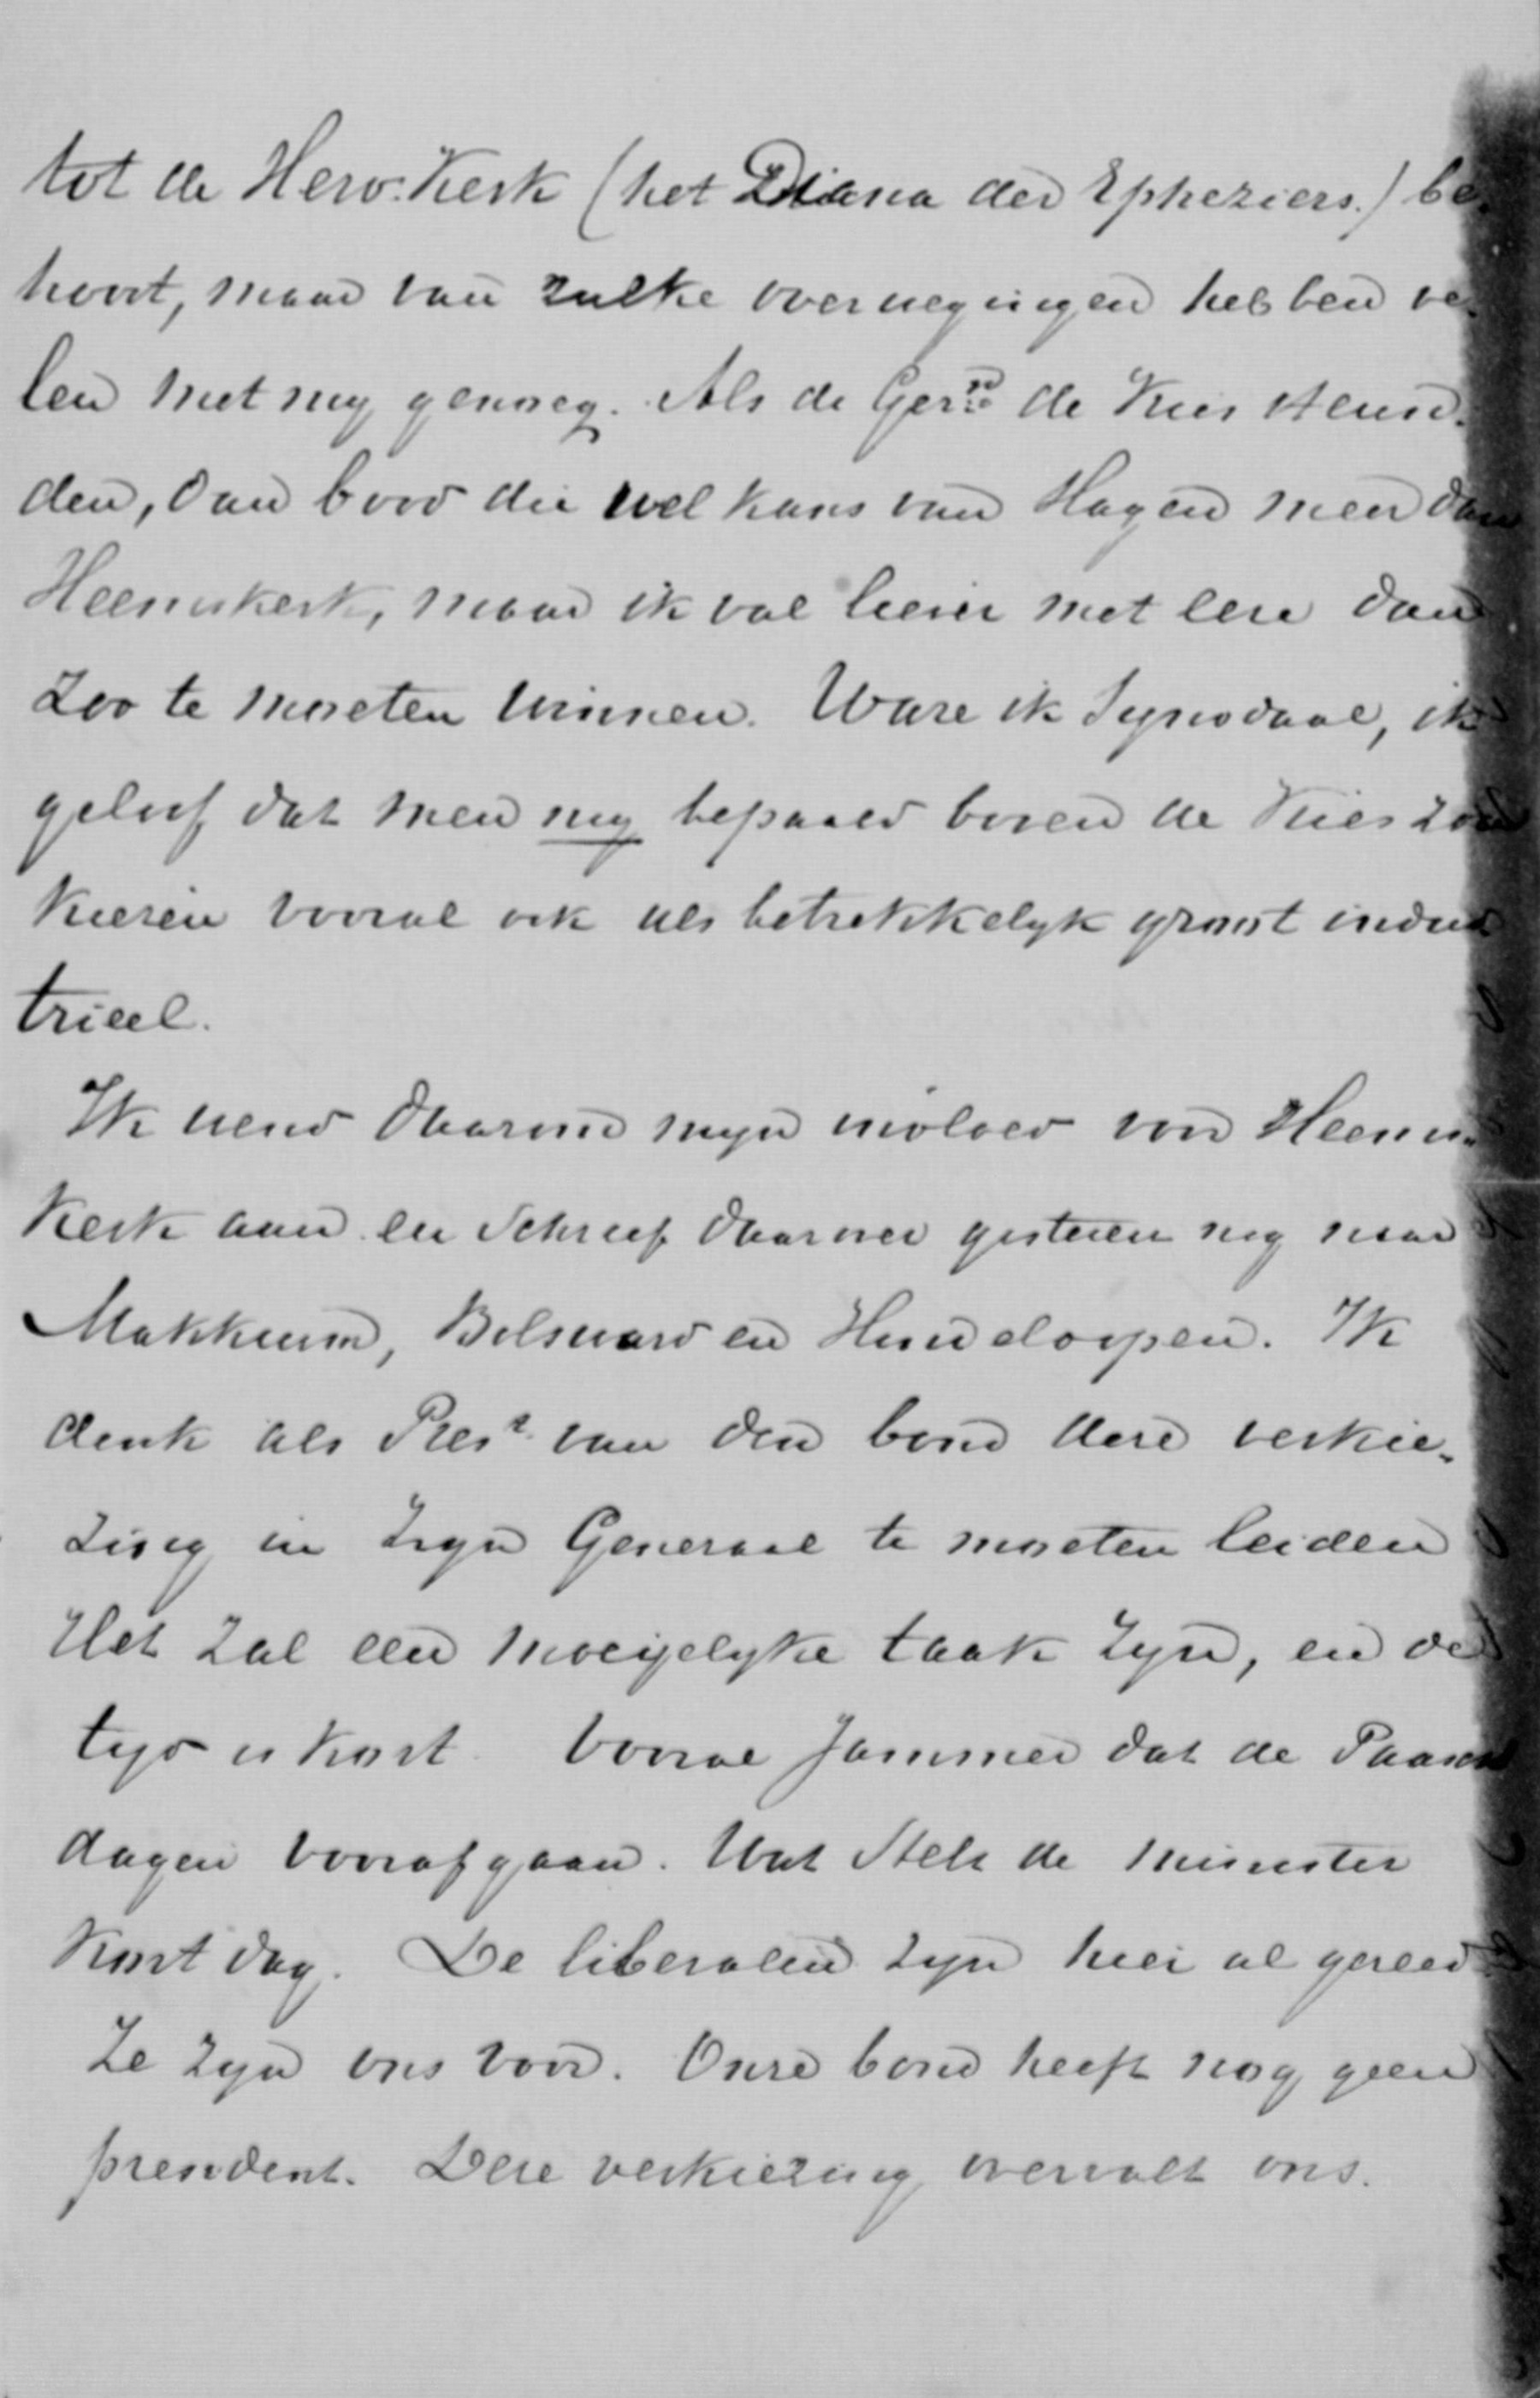 tot de Herv. Kerk (het Diana der Epheziers.) be-
hoort, maar van zulke overwegingen hebben ve-
len met my genoeg. Als de Ger.rd de Kies steun-
den, dan bood die wel kans van slagen meer dan
Heemskerk, maar ik val liever met eere dan
zoo te moeten winnen. Ware ik Synodaal, ik
geloof dat men my bepaald boven de Kies zou
kiezen vooral ook als betrekkelyk groot indus
trieel.
Ik wend daarom myn invloed voor Heems-
kerk aan en schreef daarover gisteren nog naar
Makkum, Bolsward en Hindeloopen. Ik
denk als Prest. van den bond deze verkie-
zing in zyn Generaal te moeten leiden
Het zal een moeyelyke taak zyn, en de
tyd is kort. Vooral jammer dat de Paasch
dagen voorafgaan. Wat stelt de minister
kort dag. De liberalen zyn hier al gereed
Ze zyn ons voor. Onze bond heeft nog geen
president. Deze verkiezing overvalt ons.